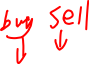 buy sell